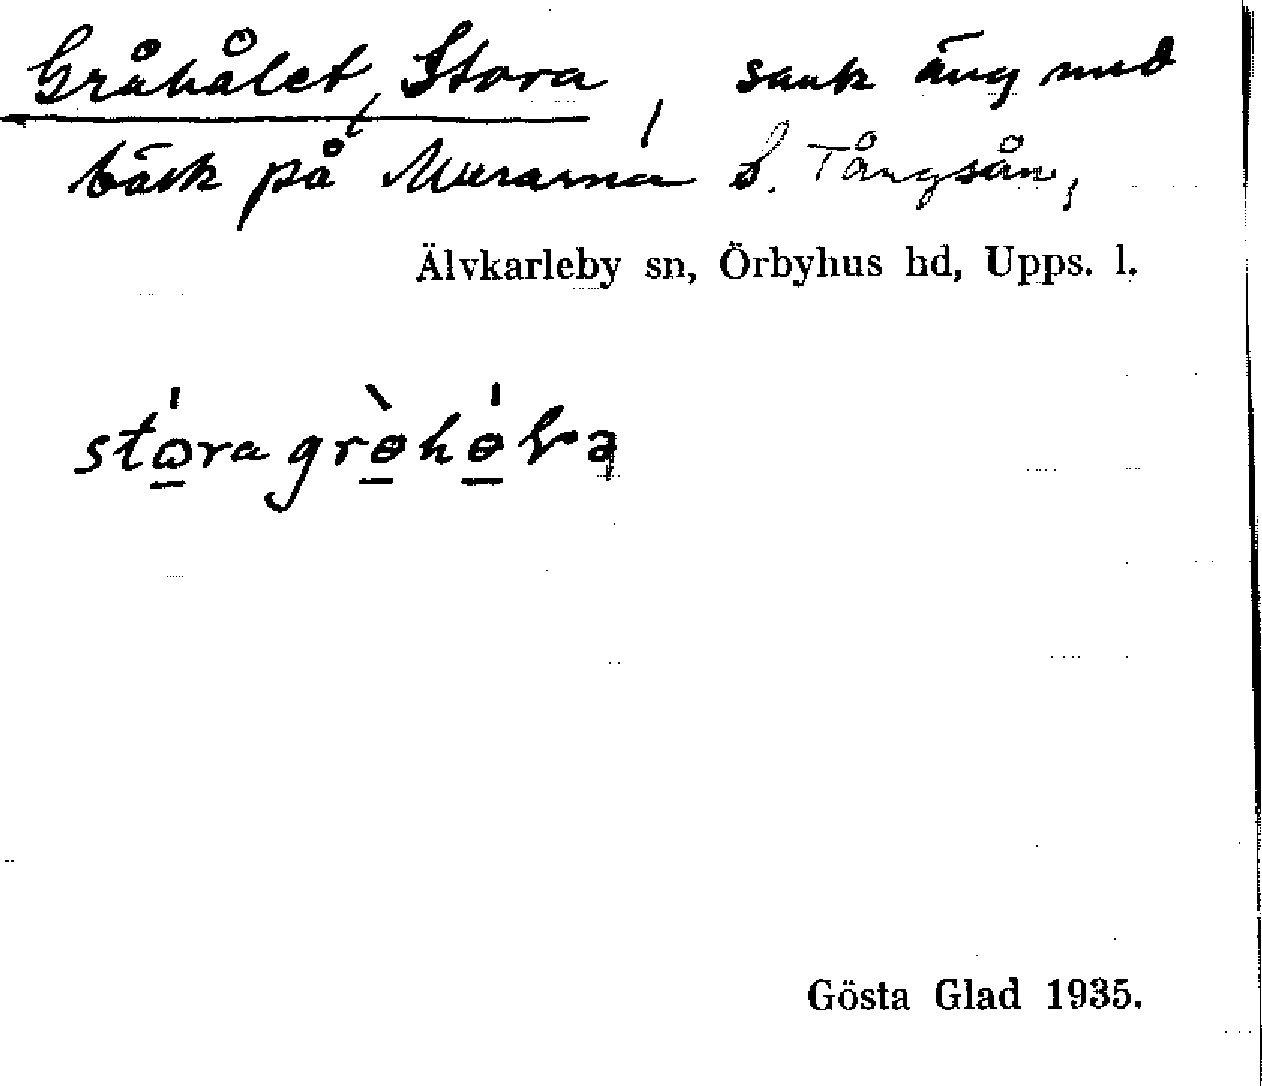 Gråhålet, Stora, sank äng med
bäck på Murarna S. Tångsån,
Älvkarleby sn, Örbyhus hd, Upps. l.
Gösta Glad 1935.